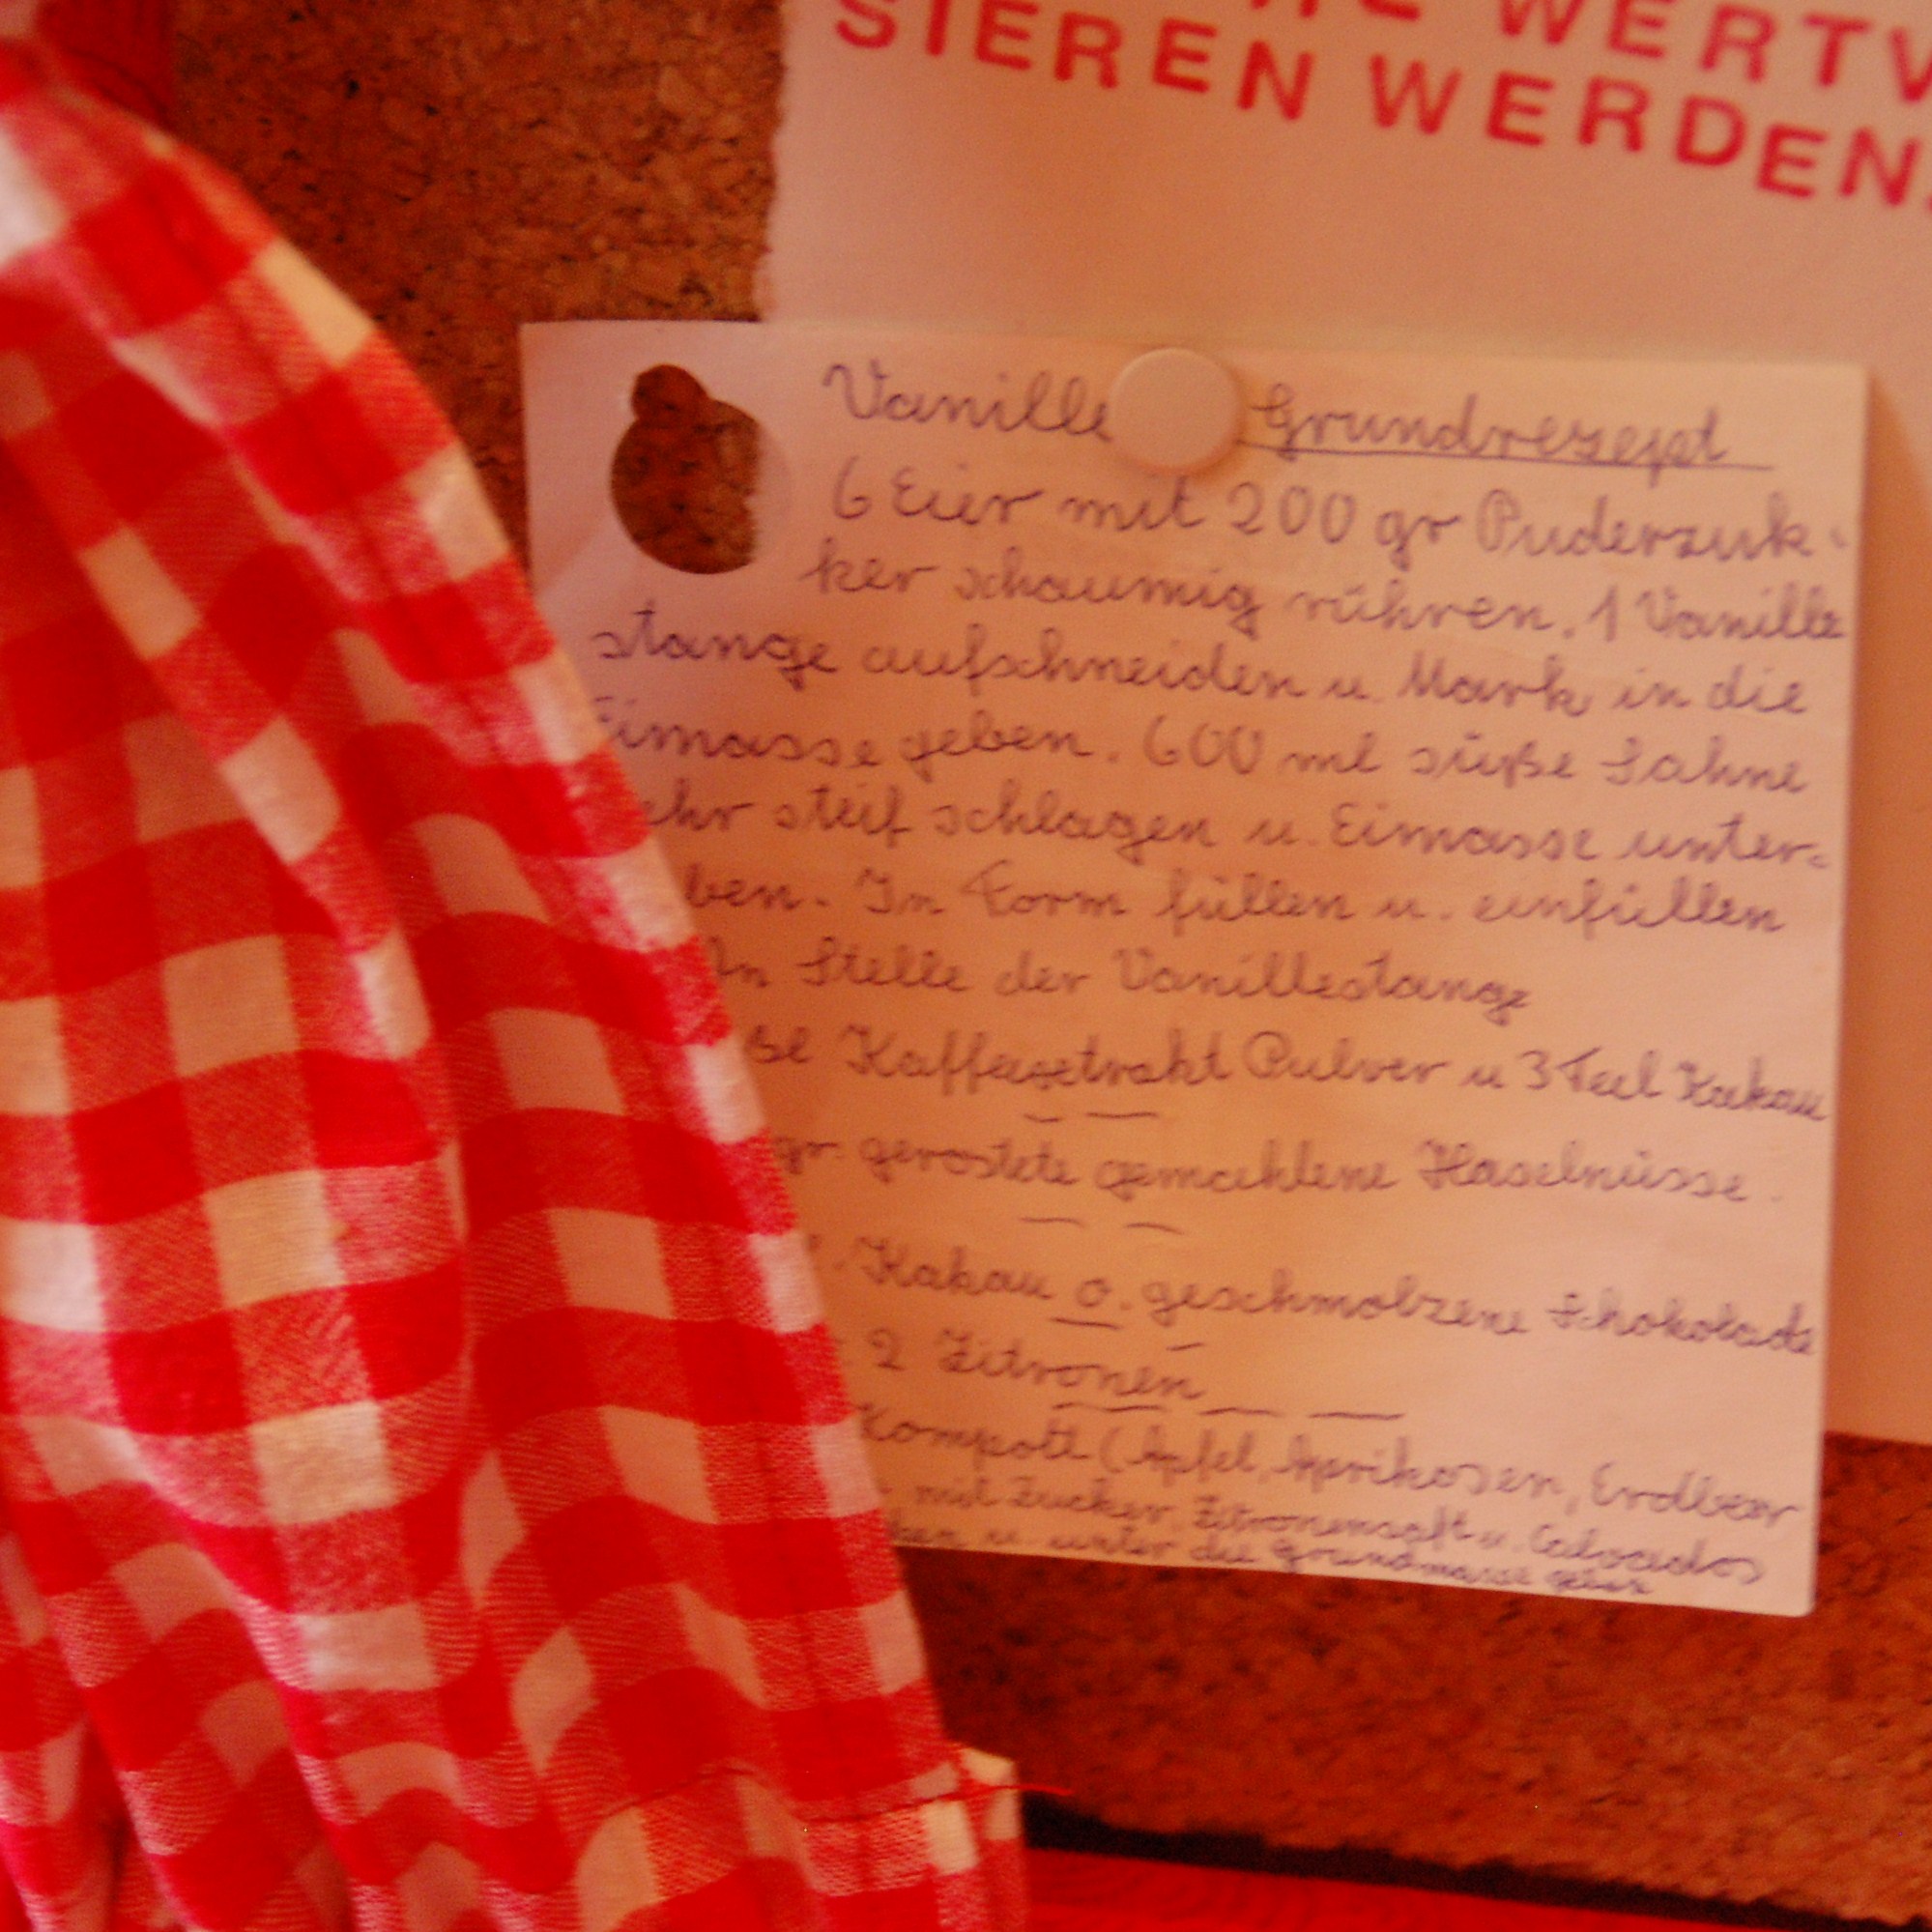 WERTV
SIEREN WERDEN.
Vanille Grundrezept
6 Eier mit 200 gr Puderzuk-
ker schaumig rühren. 1 Vanille
stange aufschneiden u. Mark in die
Eimasse geben. 600 ml süße Sahne
ehr steif schlagen u. Eimasse unter-
ben. In Form füllen u. einfüllen
An Stelle der Vanillestange
Pulver u 3 Teel Kakau
gr. geröstete gemahlene Haselnüsse.
Kakau o. geschmolzene Schokolade
2 Zitronen
Kompott (Apfel, Aprikosen, Erdbeer
mit Zucker, Zitronensaft u. Calvados
u. unter die Grundmasse geben